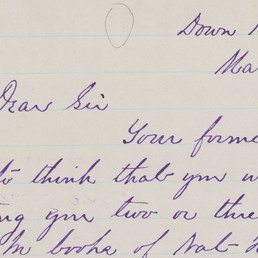 Down
Ma
Dear Sir
Your forme
to think that you w
ing you two or thre
in books of Nat H